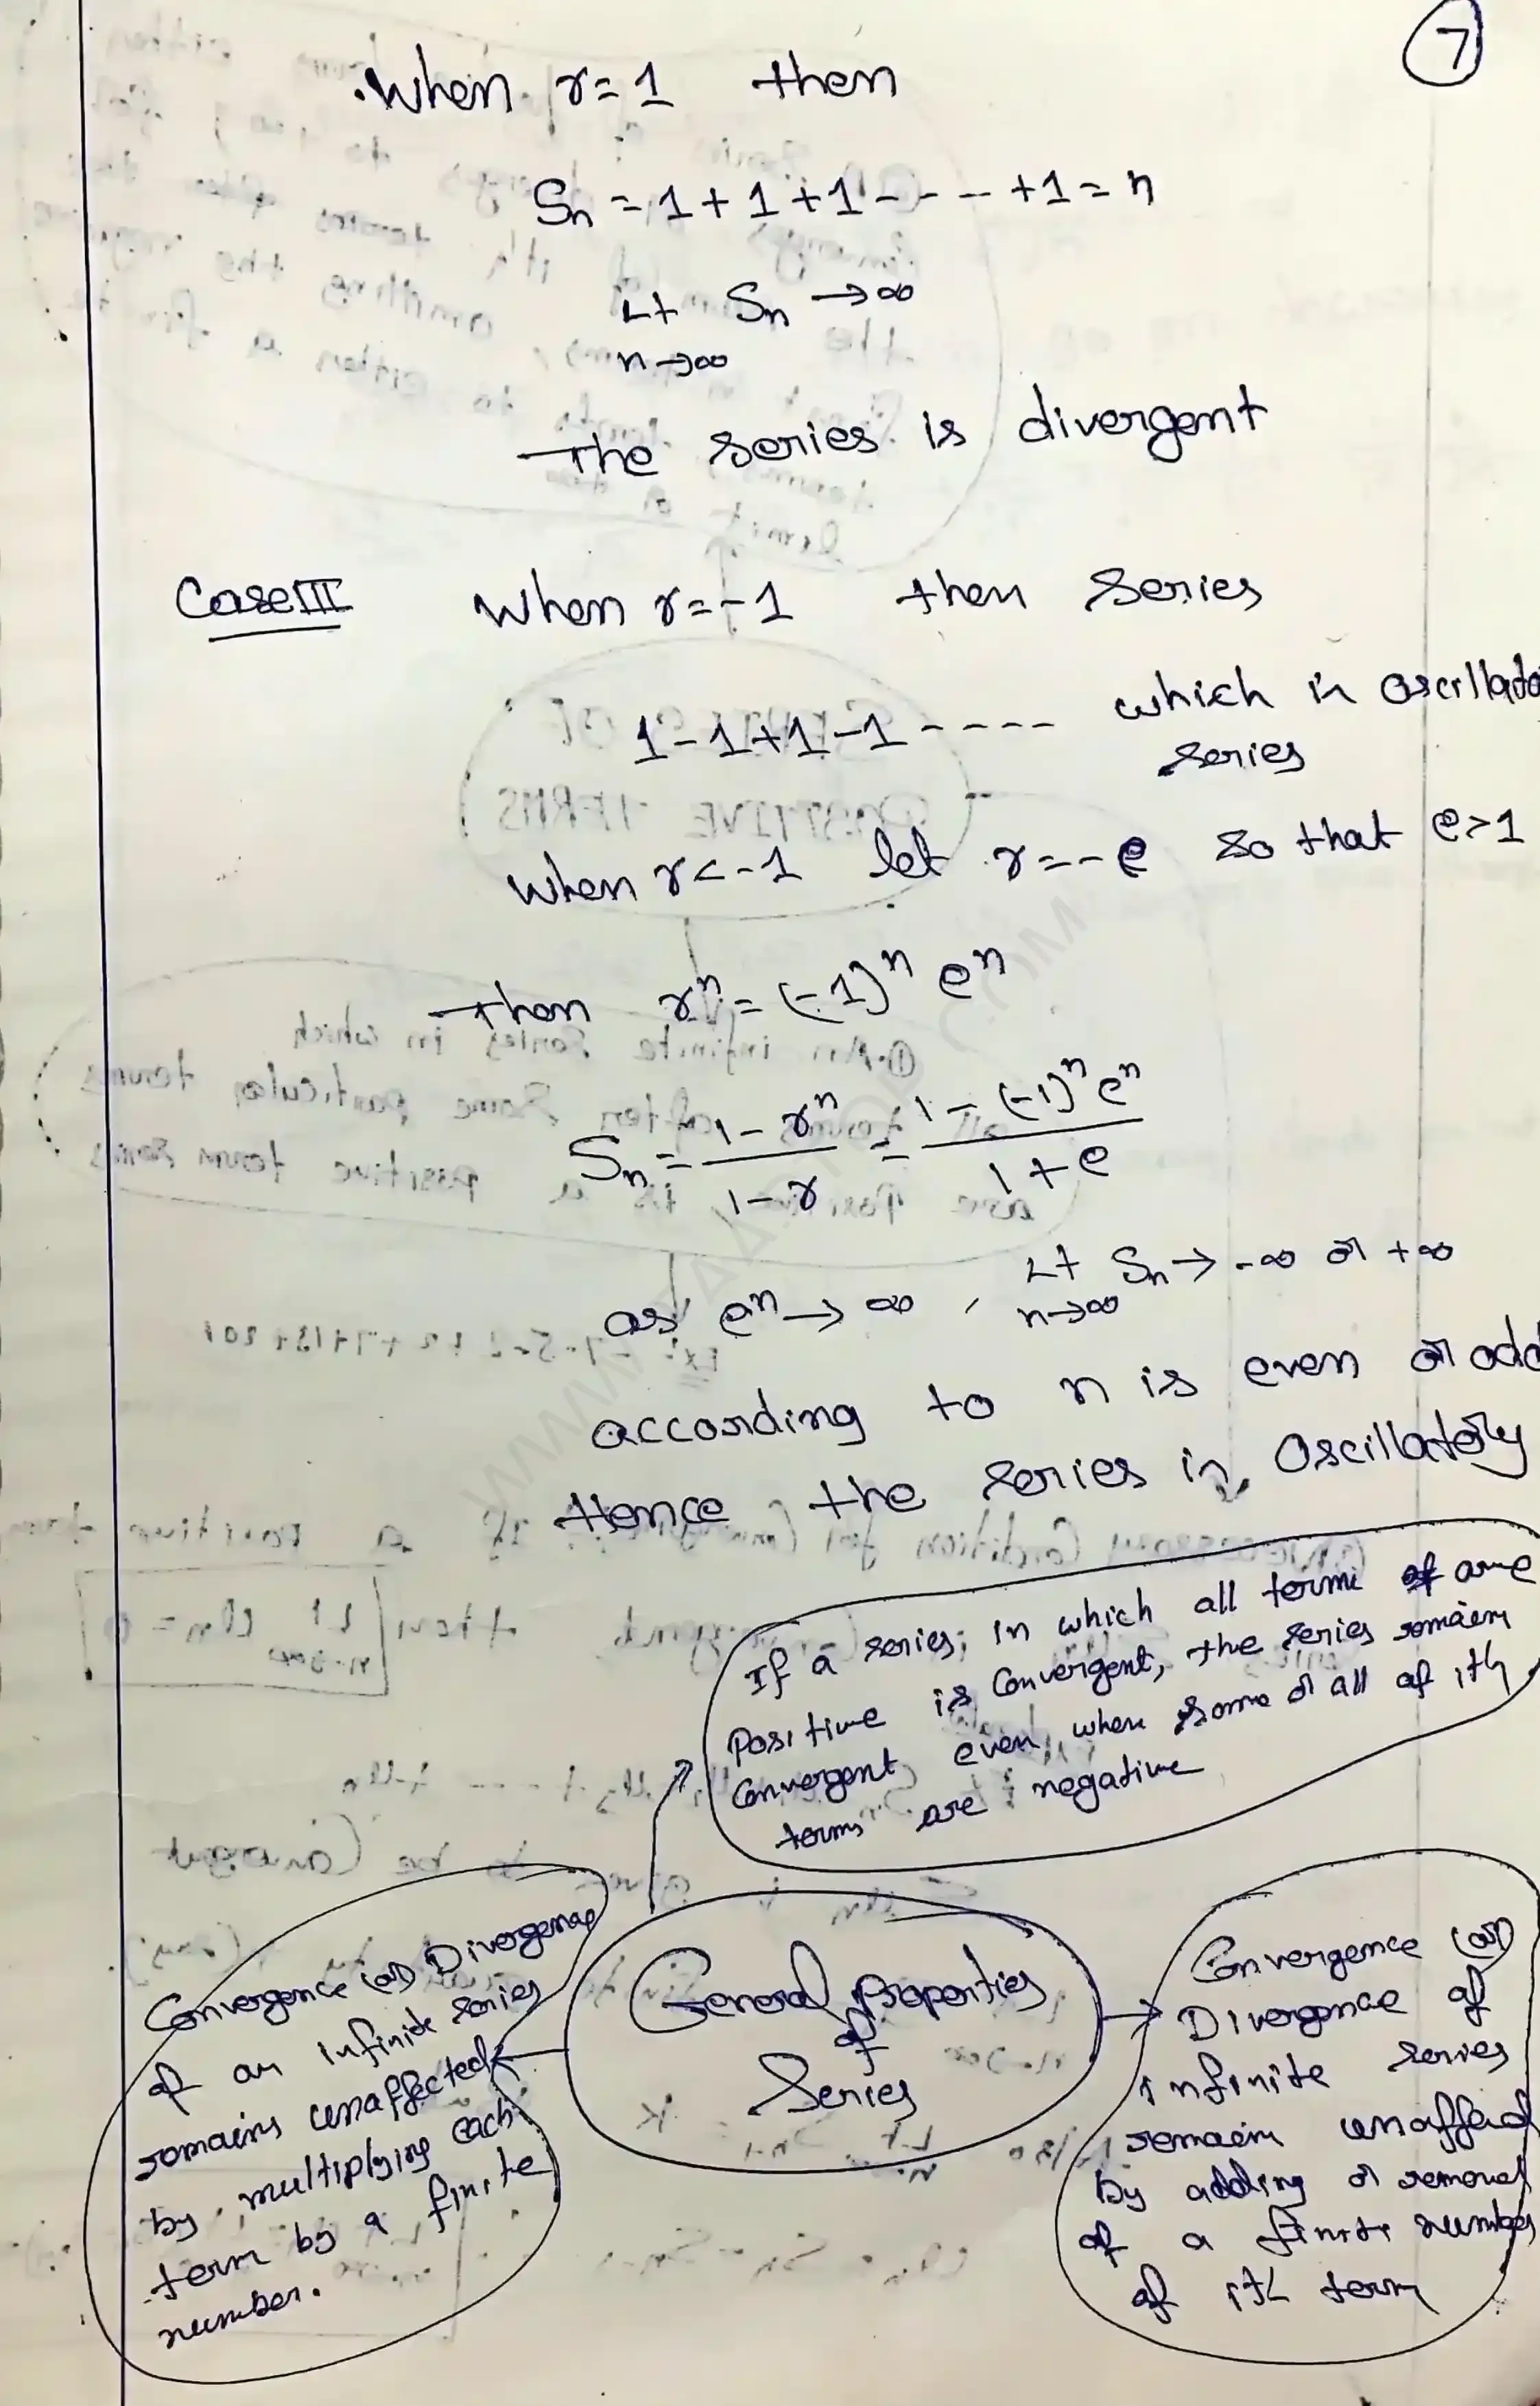 7
When r=1 then
Sn = 1+1+1 - - - +1 = n
Lt Sn → ∞
n→∞
The series is divergent
Case III When r=-1 then series
1-1+1-1 - - - - which in oscillato
series
When r<-1 let r=-e so that e>1
Then rⁿ = (-1)ⁿ eⁿ
Sn = (1-rⁿ)/(1-r) = (1-(-1)ⁿeⁿ)/(1+e)
as eⁿ → ∞ , Lt Sn → -∞ or +∞
n→∞
according to n is even or odd
Hence the series in Oscillatory
If a series, in which all terms are
Positive is Convergent, the series remain
Convergent even when some or all of its
terms are negative
General Properties
of
Series
Convergence (or) Divergence
of an infinite series
remains unaffected
by multiplying each
term by a finite
number.
Convergence (or)
Divergence of
infinite series
remain unaffected
by adding or removal
of a finite number
of its term
WWW. .COM